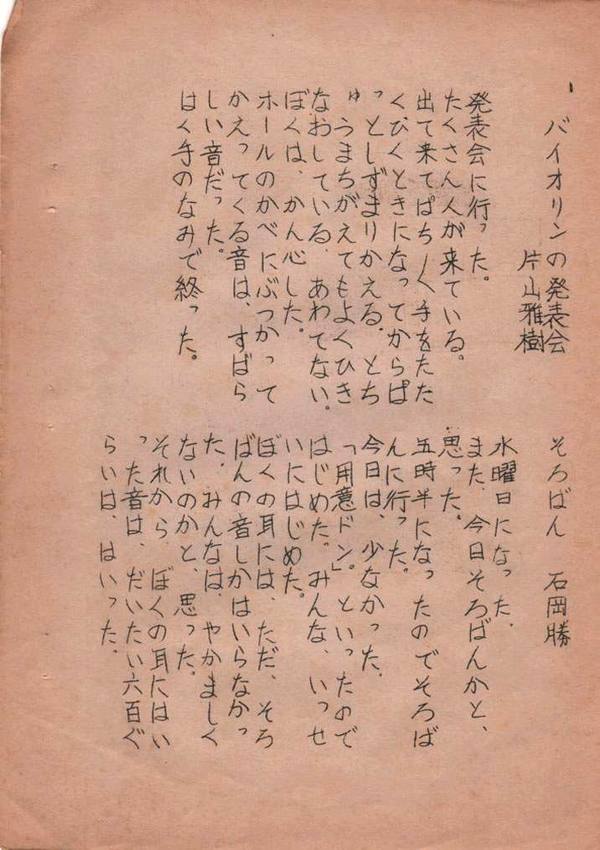 バイオリンの発表会
片山雅樹
発表会に行った。
たくさん人が来ている。
出て来てぱち〳〵手をたた
く、ひくときになってからぱ
っとしずまりかえる、とち
ゅうまちがえてもよくひき
なおしている、あわてない。
ぼくは、かん心した。
ホールのかべにぶつかって
かえってくる音は、すばら
しい音だった。
はく手のなみで終った。
そろばん 石岡勝
水曜日になった、
また、今日そろばんかと、
思った。
五時半になったのでそろば
んに行った。
今日は、少なかった、
「用意ドン」といったので
はじめた。みんな、いっせ
いにはじめた。
ぼくの耳には、ただ、そろ
ばんの音しかはいらなかっ
た、みんなは、やかましく
ないのかと、思った。
それから ぼくの耳にはい
った音は、だいたい六百ぐ
らいは、はいった。